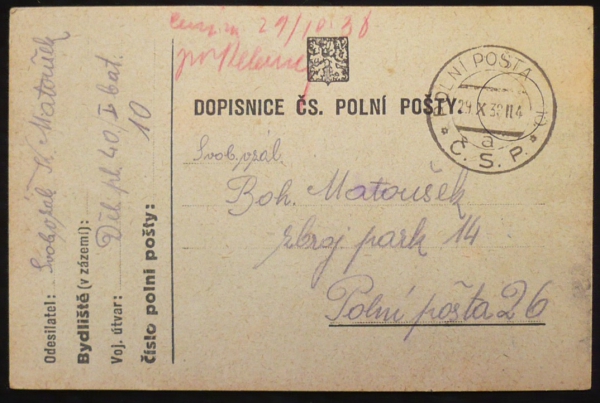 29/10 38
DOPISNICE ČS. POLNÍ POŠTY
POLNÍ POŠTA
29.X.38
a
Č. S. P.
Svob. zpál.
Boh. Matoušek
zbroj park 14
Polní pošta 26
Odesílatel: Matoušek
Bydliště (v zázemí):
Voj. útvar: Děl. pl. 40, I bat.
Číslo polní pošty: 10